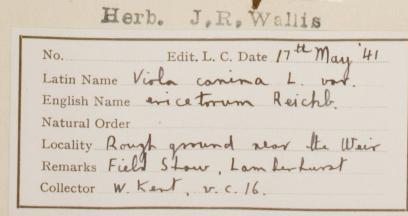 Herb. J.R. Wallis
No. Edit. L. C. Date 17th May '41
Latin Name Viola canina L. var.
English Name ericetorum Reichb.
Natural Order
Locality Rough ground near the Weir
Remarks Field Shaw, Lamberhurst
Collector W. Kent, v.c. 16.